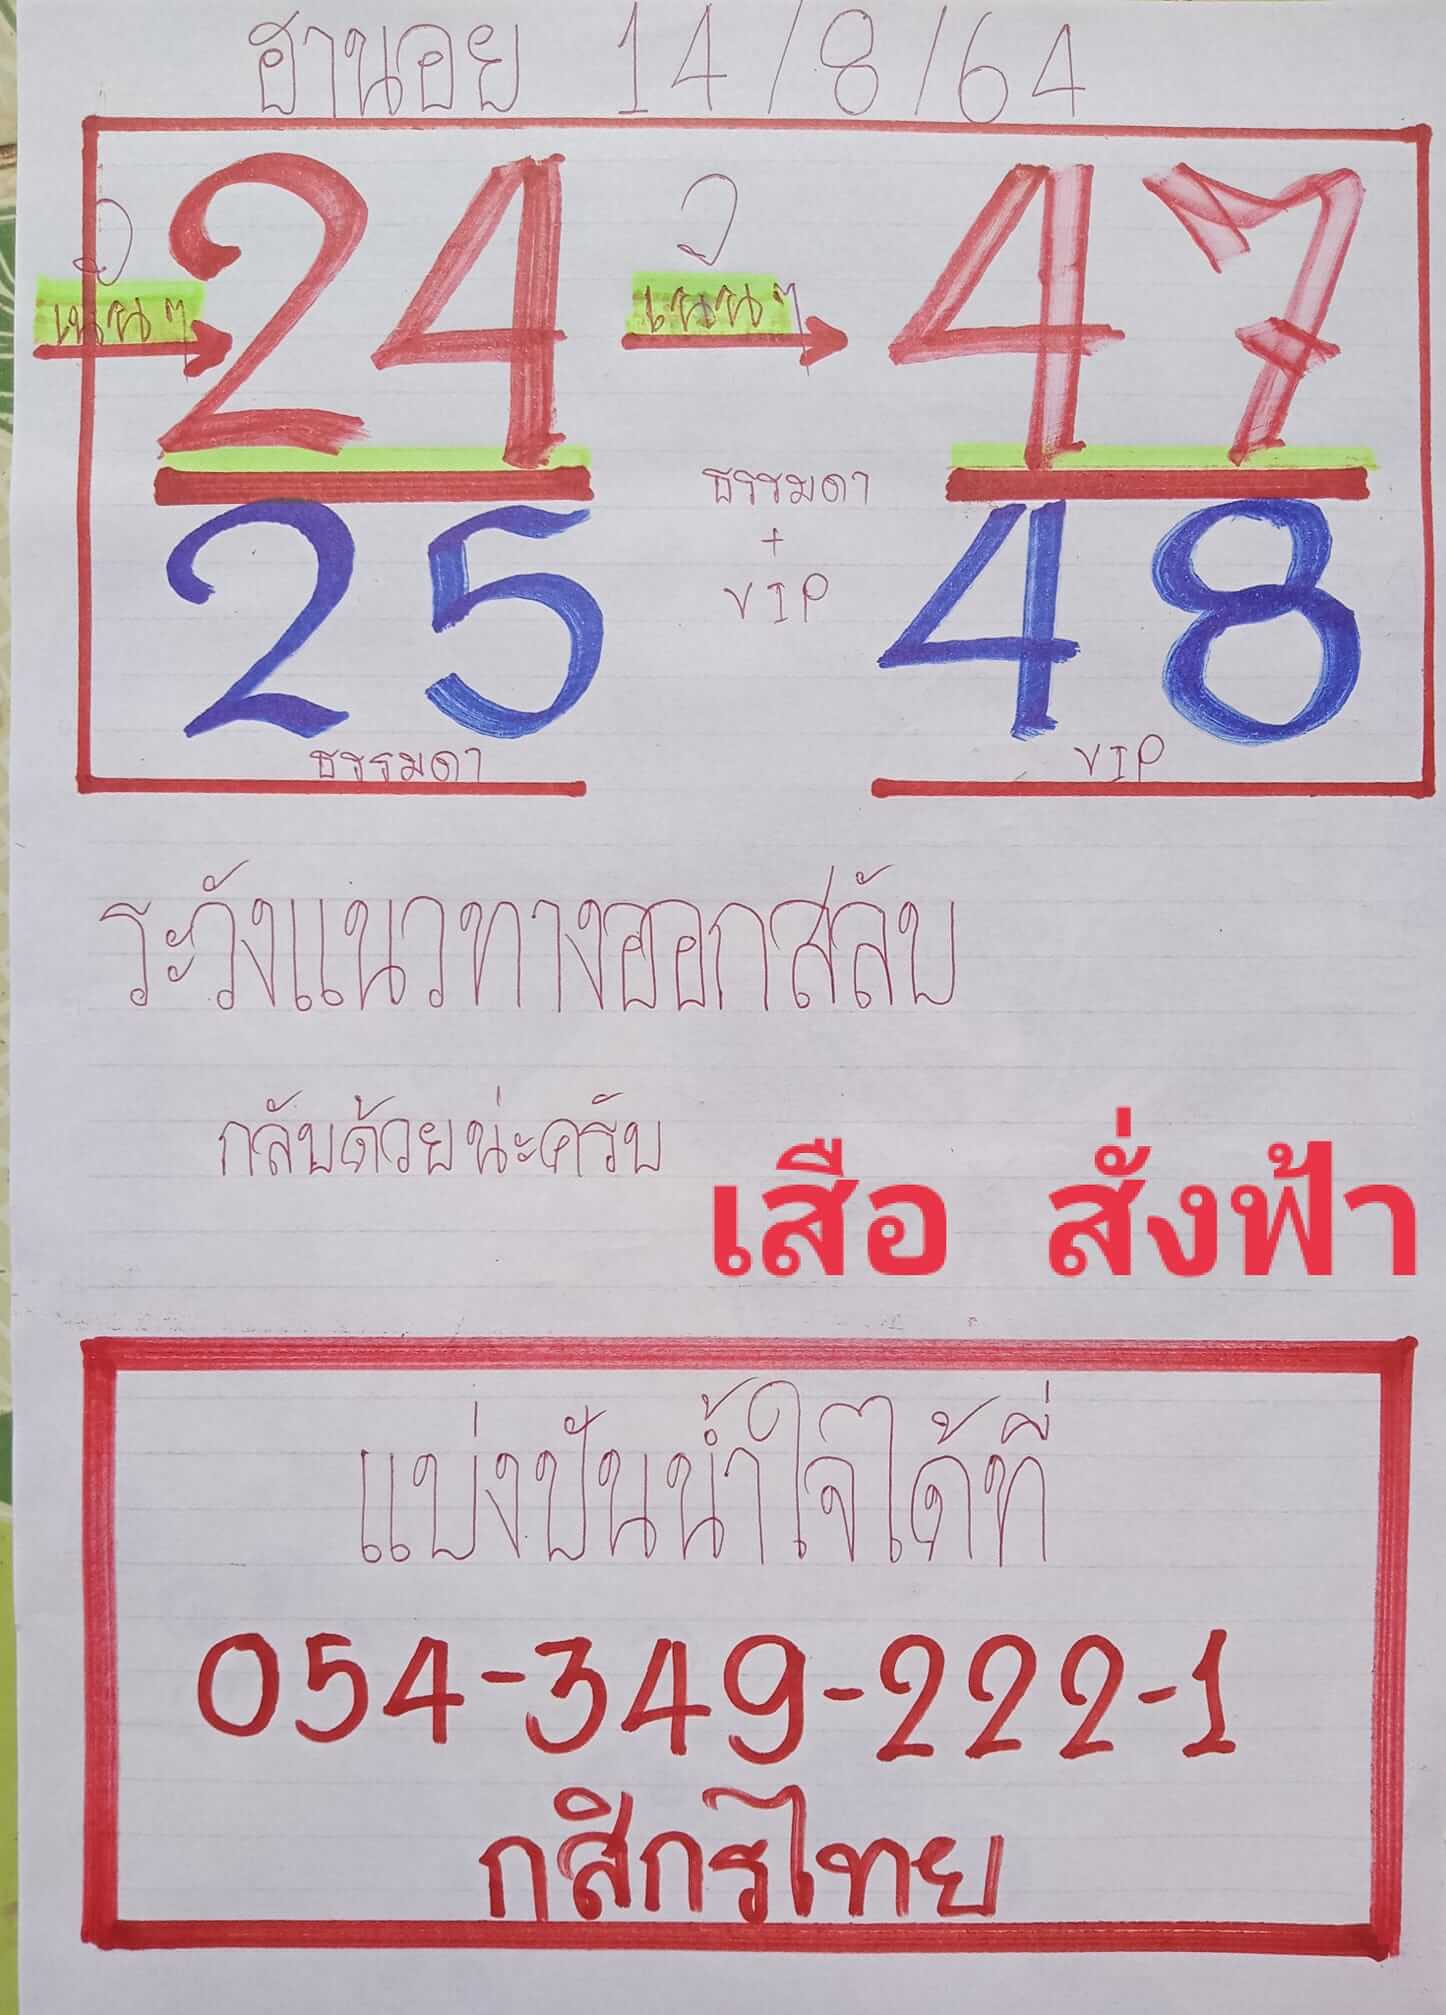 ฮานอย 14/8/64
เน้นๆ 24 เน้นๆ 47
ธรรมดา
+
VIP
25 48
ธรรมดา VIP
ระวังแนวทางออกสลับ
กลับด้วยน่ะครับ
เสือ สั่งฟ้า
แบ่งปันน้ำใจได้ที่
054-349-222-1
กสิกรไทย